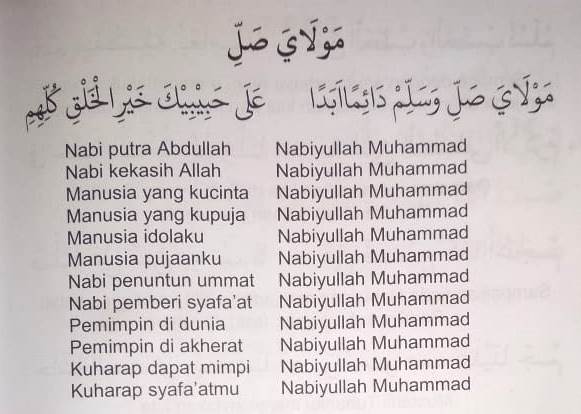 مَوْلَايَ صَلِّ
مَوْلَايَ صَلِّ وَسَلِّمْ دَائِمًاأَبَدًا عَلَى حَبِيْبِكَ خَيْرِ الْخَلْقِ كُلِّهِمِ
Nabi putra Abdullah Nabiyullah Muhammad
Nabi kekasih Allah Nabiyullah Muhammad
Manusia yang kucinta Nabiyullah Muhammad
Manusia yang kupuja Nabiyullah Muhammad
Manusia idolaku Nabiyullah Muhammad
Manusia pujaanku Nabiyullah Muhammad
Nabi penuntun ummat Nabiyullah Muhammad
Nabi pemberi syafa'at Nabiyullah Muhammad
Pemimpin di dunia Nabiyullah Muhammad
Pemimpin di akherat Nabiyullah Muhammad
Kuharap dapat mimpi Nabiyullah Muhammad
Kuharap syafa'atmu Nabiyullah Muhammad